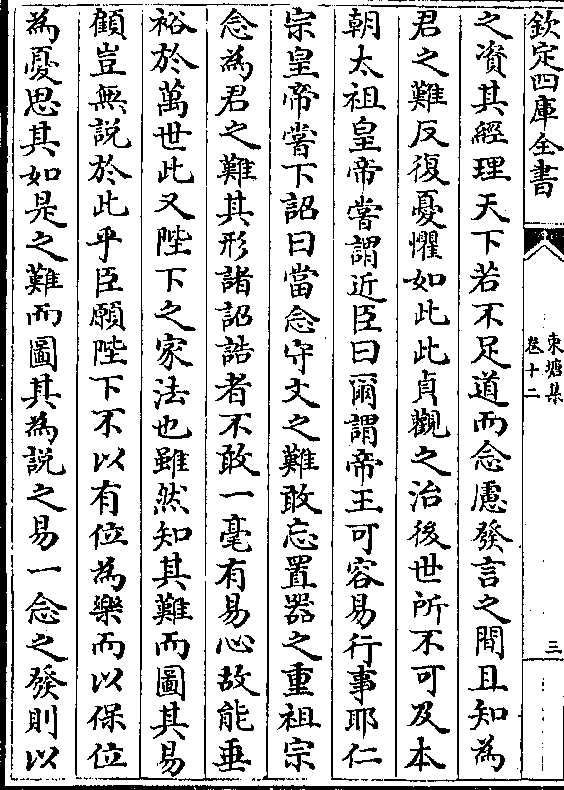 欽定四庫全書
東塘集
卷十二
三
之資其經理天下若不足道而念慮發言之間且知為
君之難反復憂懼如此此貞觀之治後世所不可及本
朝太祖皇帝嘗謂近臣曰爾謂帝王可容易行事耶仁
宗皇帝嘗下詔曰當念守文之難敢忘置器之重祖宗
念為君之難其形諸詔誥者不敢一毫有易心故能垂
裕於萬世此又陛下之家法也雖然知其難而圖其易
顧豈無說於此乎臣願陛下不以有位為樂而以保位
為憂思其如是之難而圖其為說之易一念之發則以